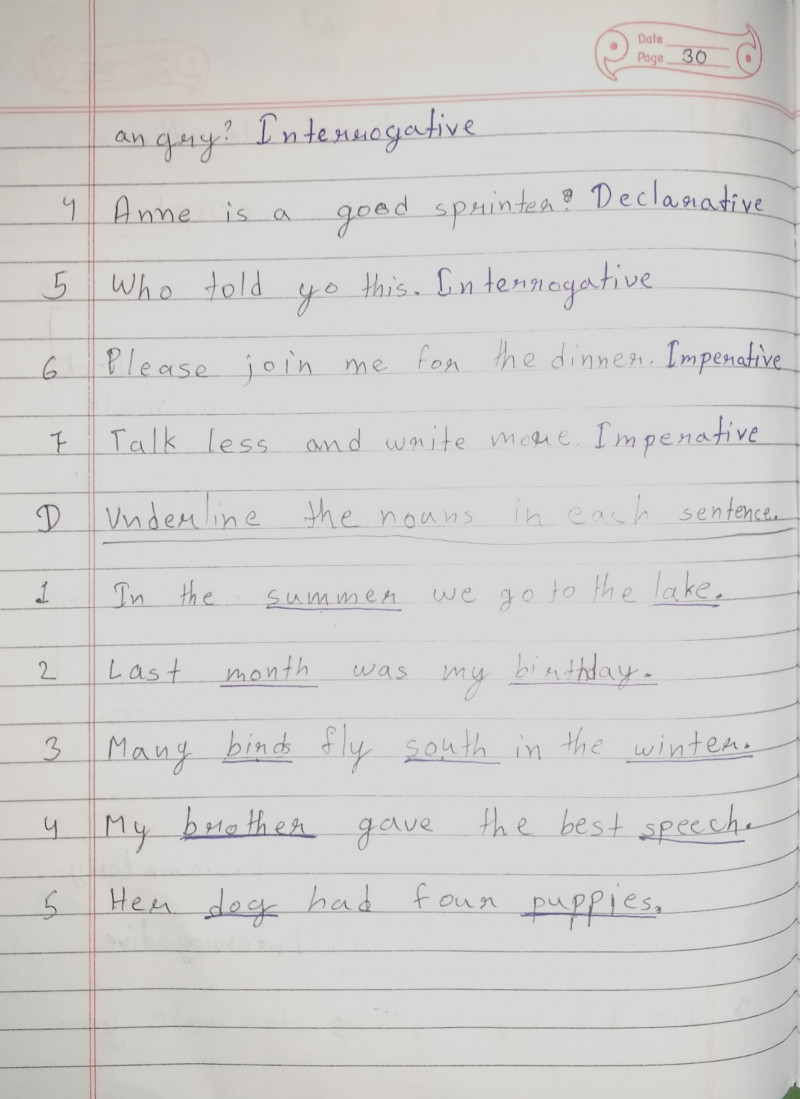 Date
Page 30
angry? Interrogative
4 Anne is a good sprinter? Declarative
5 Who told yo this. Interrogative
6 Please join me for the dinner. Imperative
7 Talk less and write more. Imperative
D Underline the nouns in each sentence.
1 In the summer we go to the lake.
2 Last month was my birthday.
3 Many birds fly south in the winter.
4 My brother gave the best speech.
5 Her dog had four puppies.